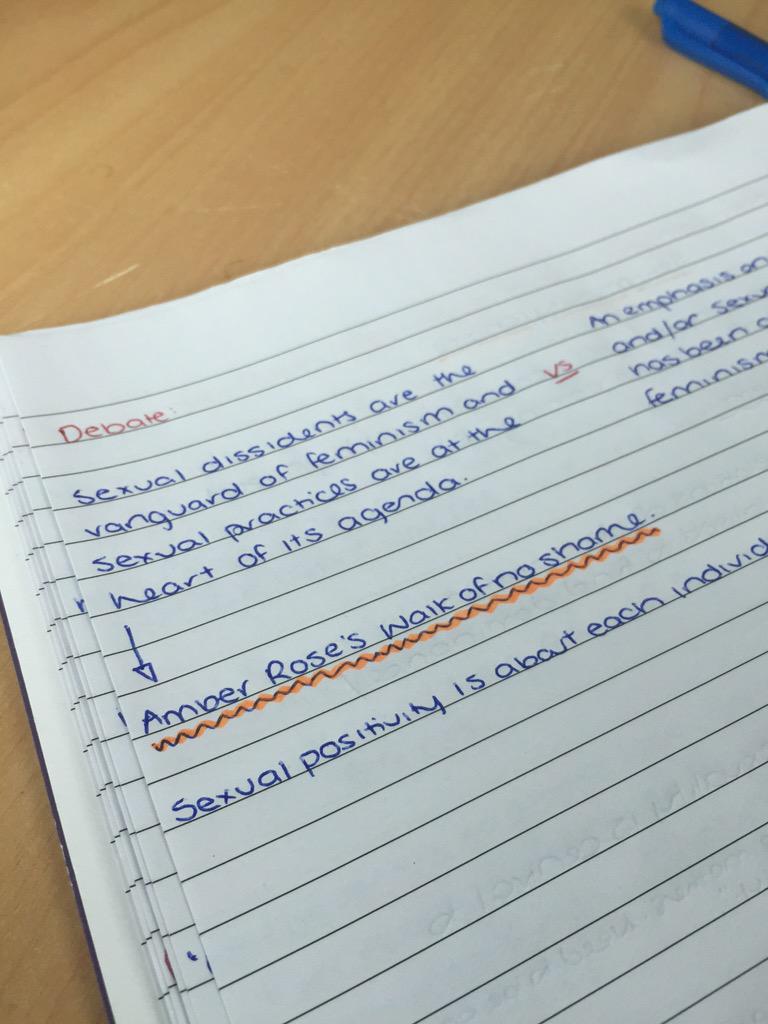 Debate:
Sexual dissidents are the
vanguard of feminism and
sexual practices are at the
heart of its agenda.
vs
An emphasis on
and/or
has been
feminism
Amber Rose's Walk of no shame.
Sexual positivity is about each